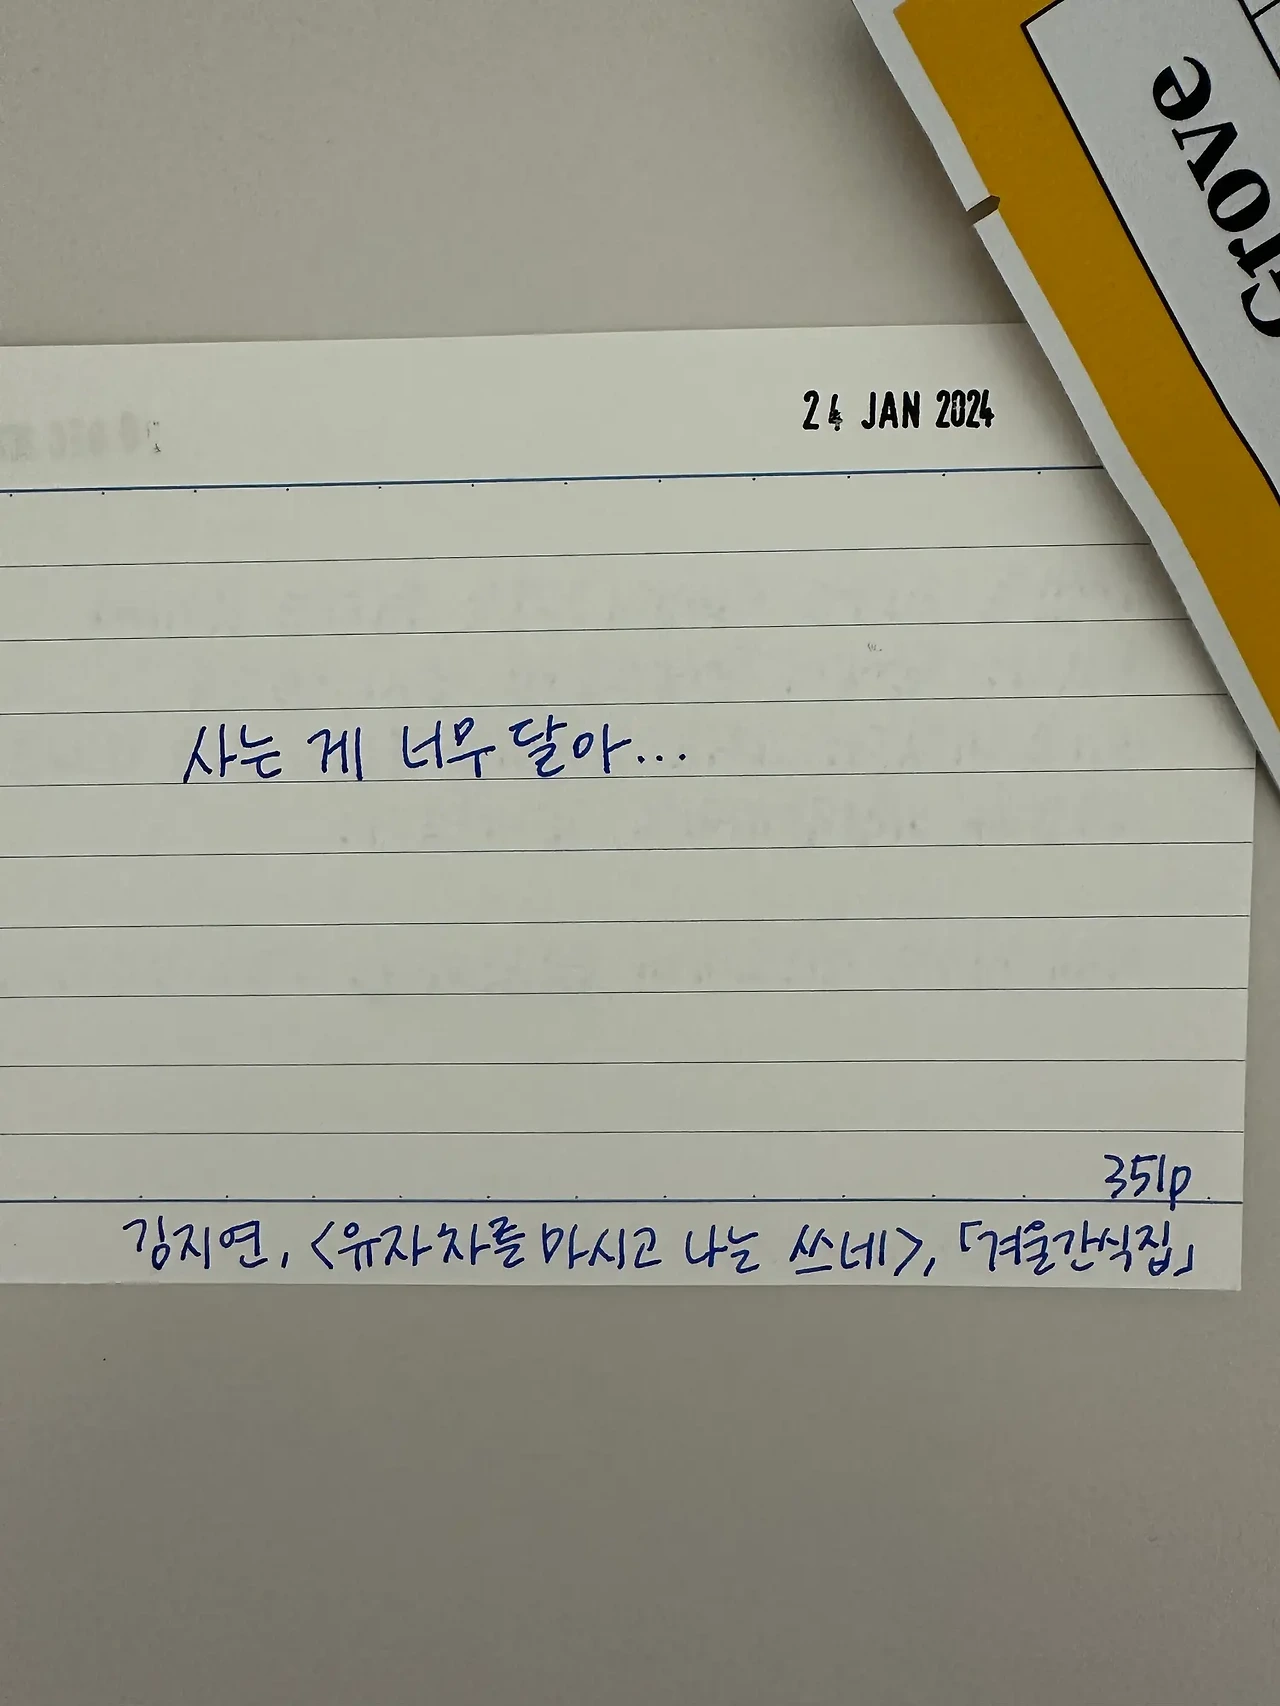 Grove
24 JAN 2024
사는 게 너무 달아...
351p
김지연, <유자차를 마시고 나는 쓰네>, 「겨울간식집」